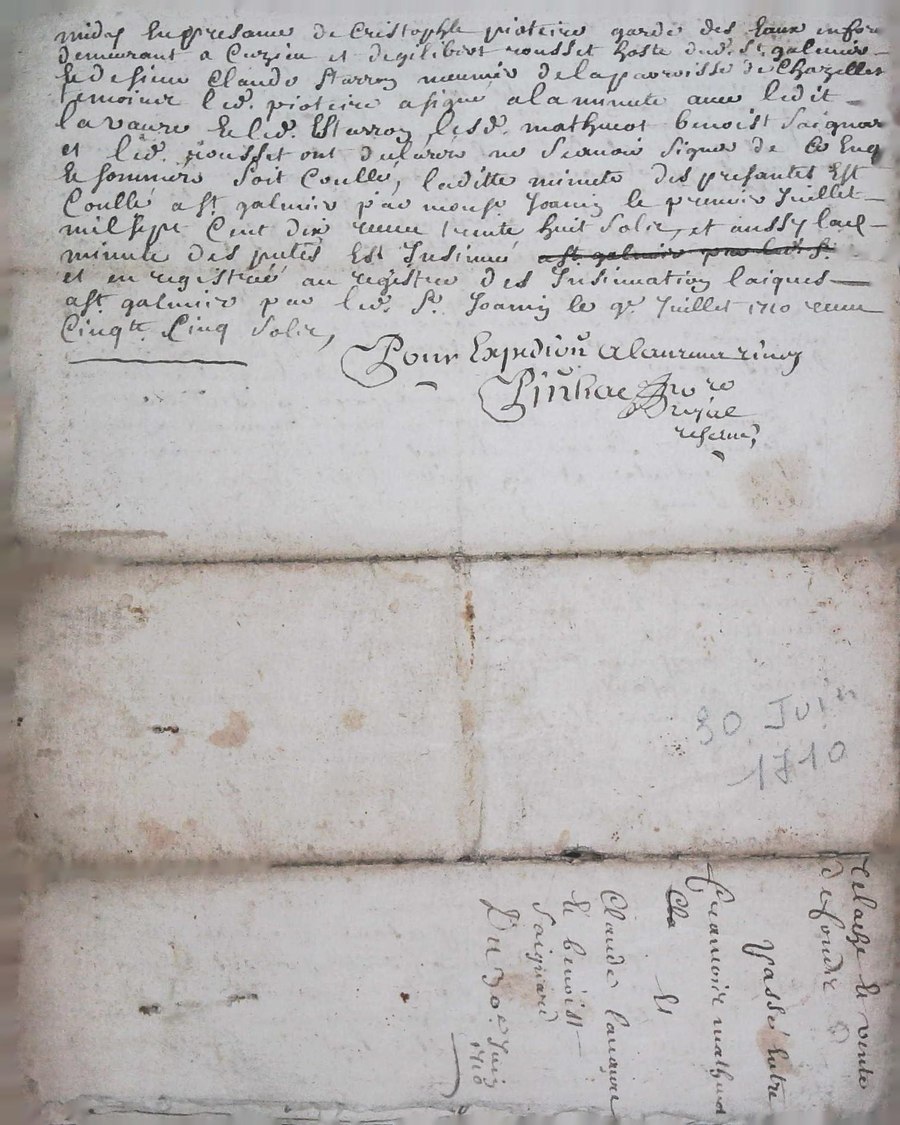 midy En presance de Cristophle pioteire garde des Eaux
demeurant a Cuzieu et de gilibert rousset hoste dud. St. galmier
Et de sieur Claude Starron meunier de la parroisse de Chazelles
temoins led. pioteire a signé a la minute avec ledit
lavaure Et led. Estarron lesd. mathevot benoist Saignar
et led. rousset ont declaré ne scavoir signer de Ce Enq
Et sommés Soit Conllé, laditte minute des presantes Est
Conllé a st. galmier par monsr. Joanin le premier Juillet
mil sept Cent dix receu trente huit Solz, et aussy lad
minute des pntes Est Insinué a st. galmier par led. s.
et en registréé au registre des Insinuation laiques
a st. galmier par led. Sr. Joanin le 9e. Juillet 1710 receu
Cinqte. Cinq Solz,
Pour Expedion
Royal
30 Juin
1710
relache Et vente
de fondz
Passé Entre
francois mathevot
Cla Et
Claude lavaure
Et benoist
Saignard
Du 30e. Juin
1710